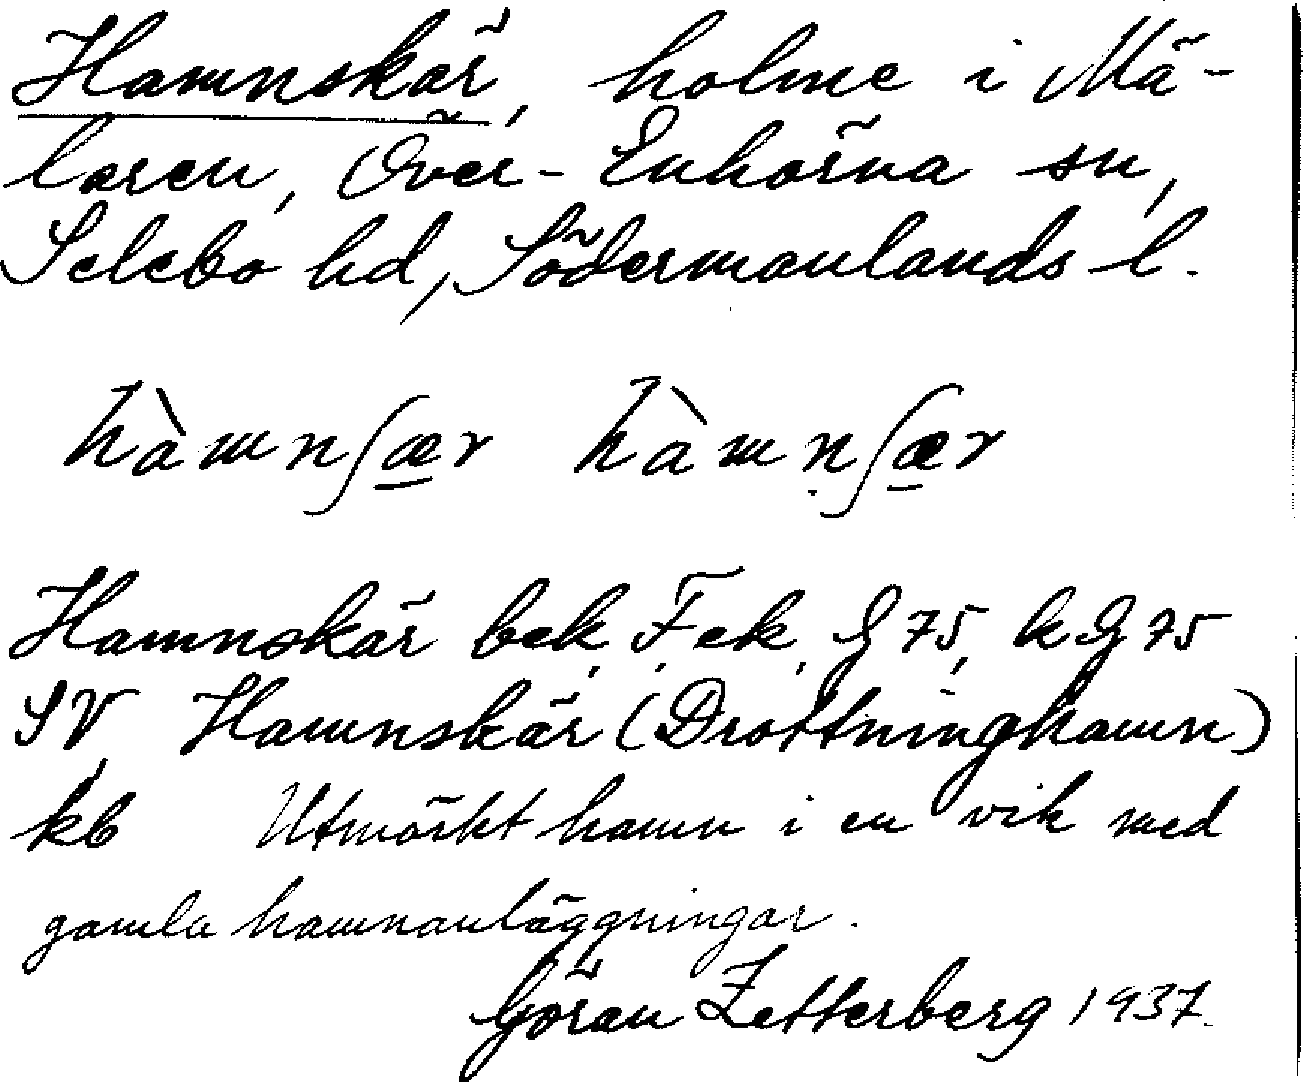 Hamnskär, holme i Mä-
laren, Över-Enhörna sn,
Selebo hd, Södermanlands l.
hàmnʃær hàmṇʃær
Hamnskär bek, Fek, G 75, k G 75
SV, Hamnskär (Drottninghamn)
kb Utmärkt hamn i en vik med
gamla hamnanläggningar.
Göran Zetterberg 1937.